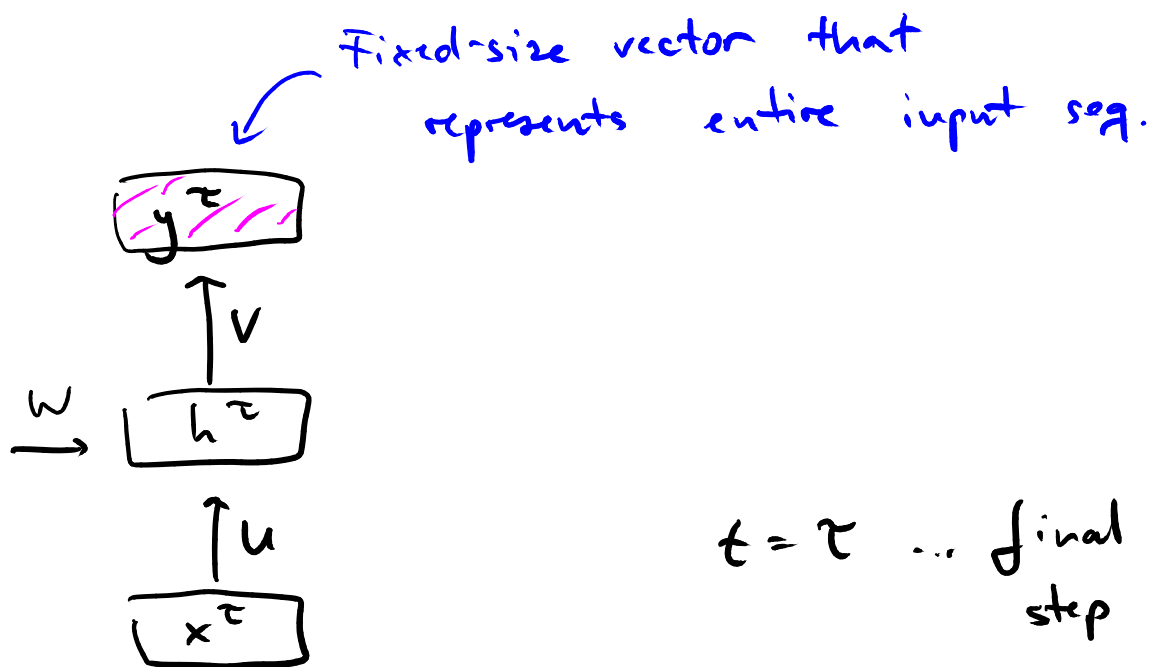 Fixed-size vector that
represents entire input seq.
y^τ
V
W
h^τ
U
t = τ ... final
step
x^τ